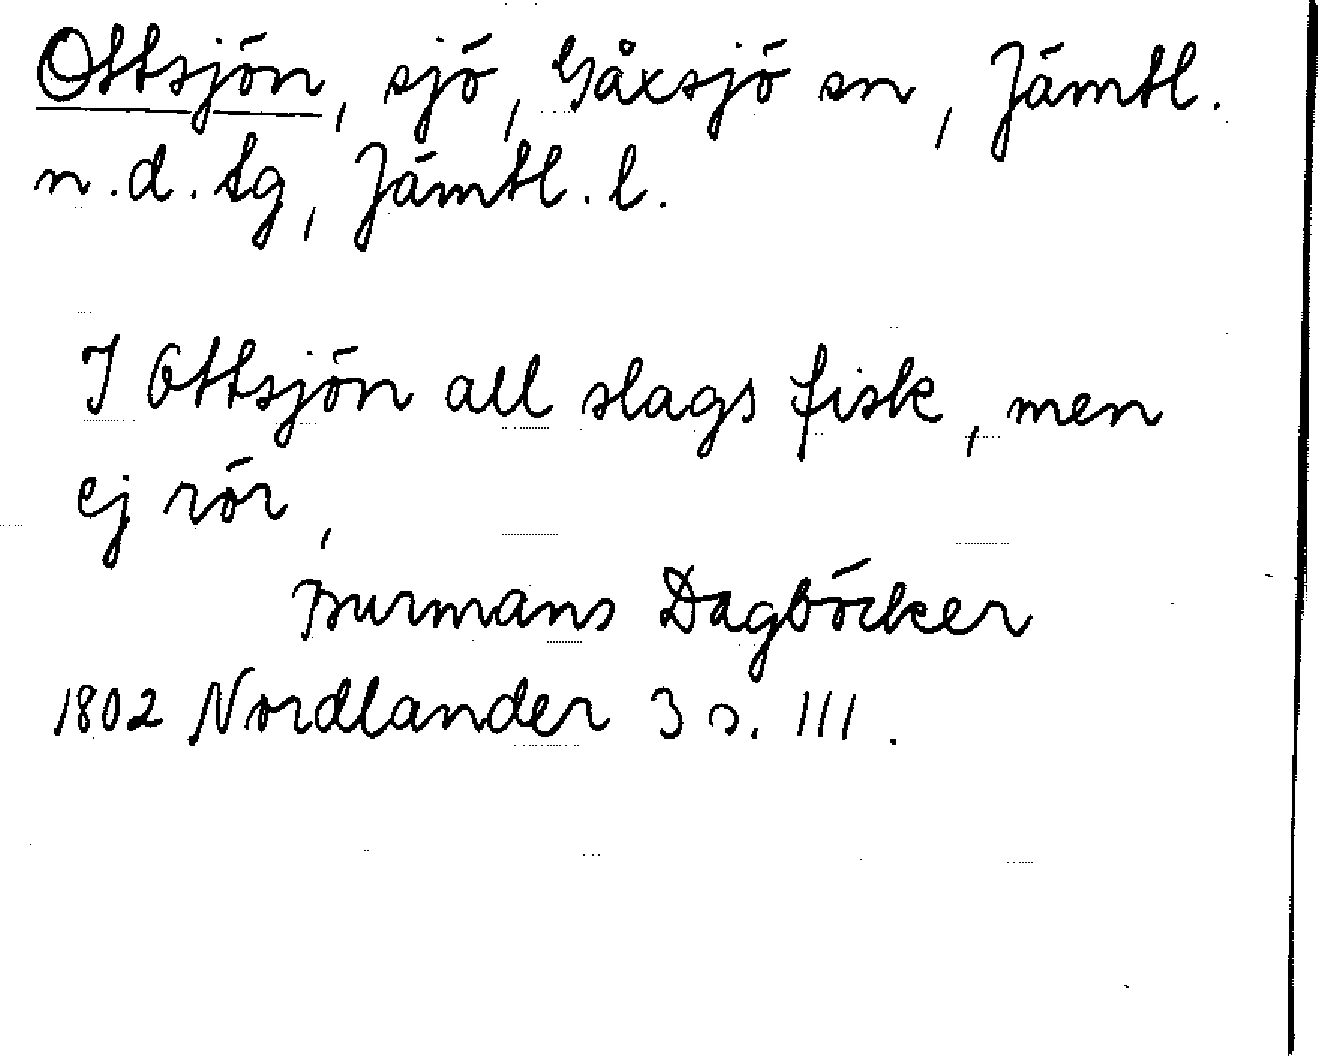 Ottsjön, sjö, Gåxsjö sn, Jämtl.
n.d. tg, Jämtl. l.
I Ottsjön all slags fisk, men
ej rör,
Burmans Dagböcker
1802 Nordlander 3 s. 111.